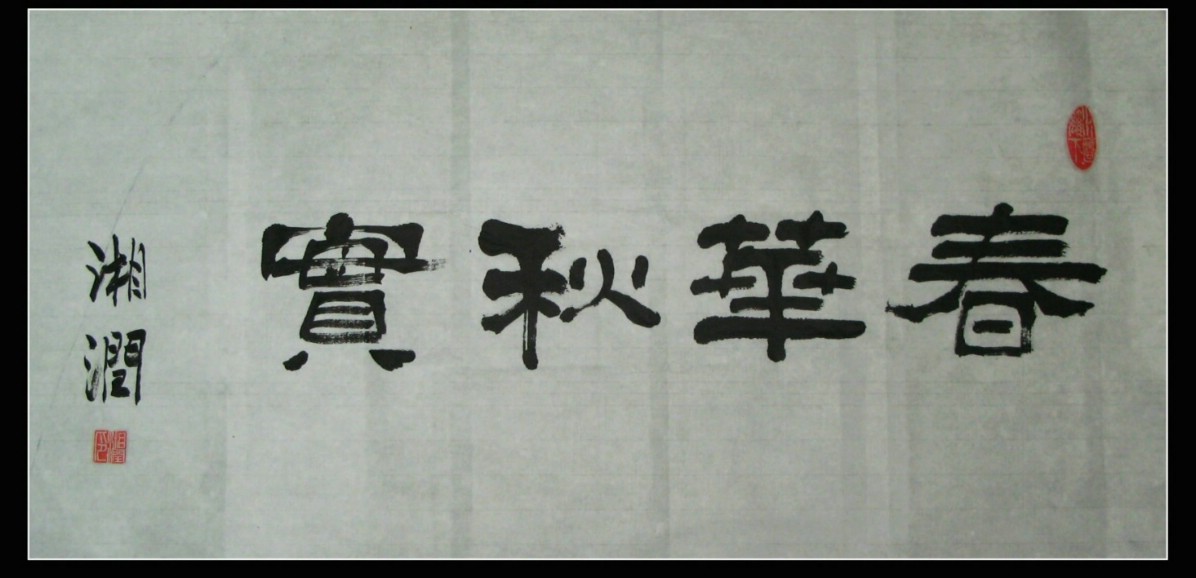 春華秋實
湘潤